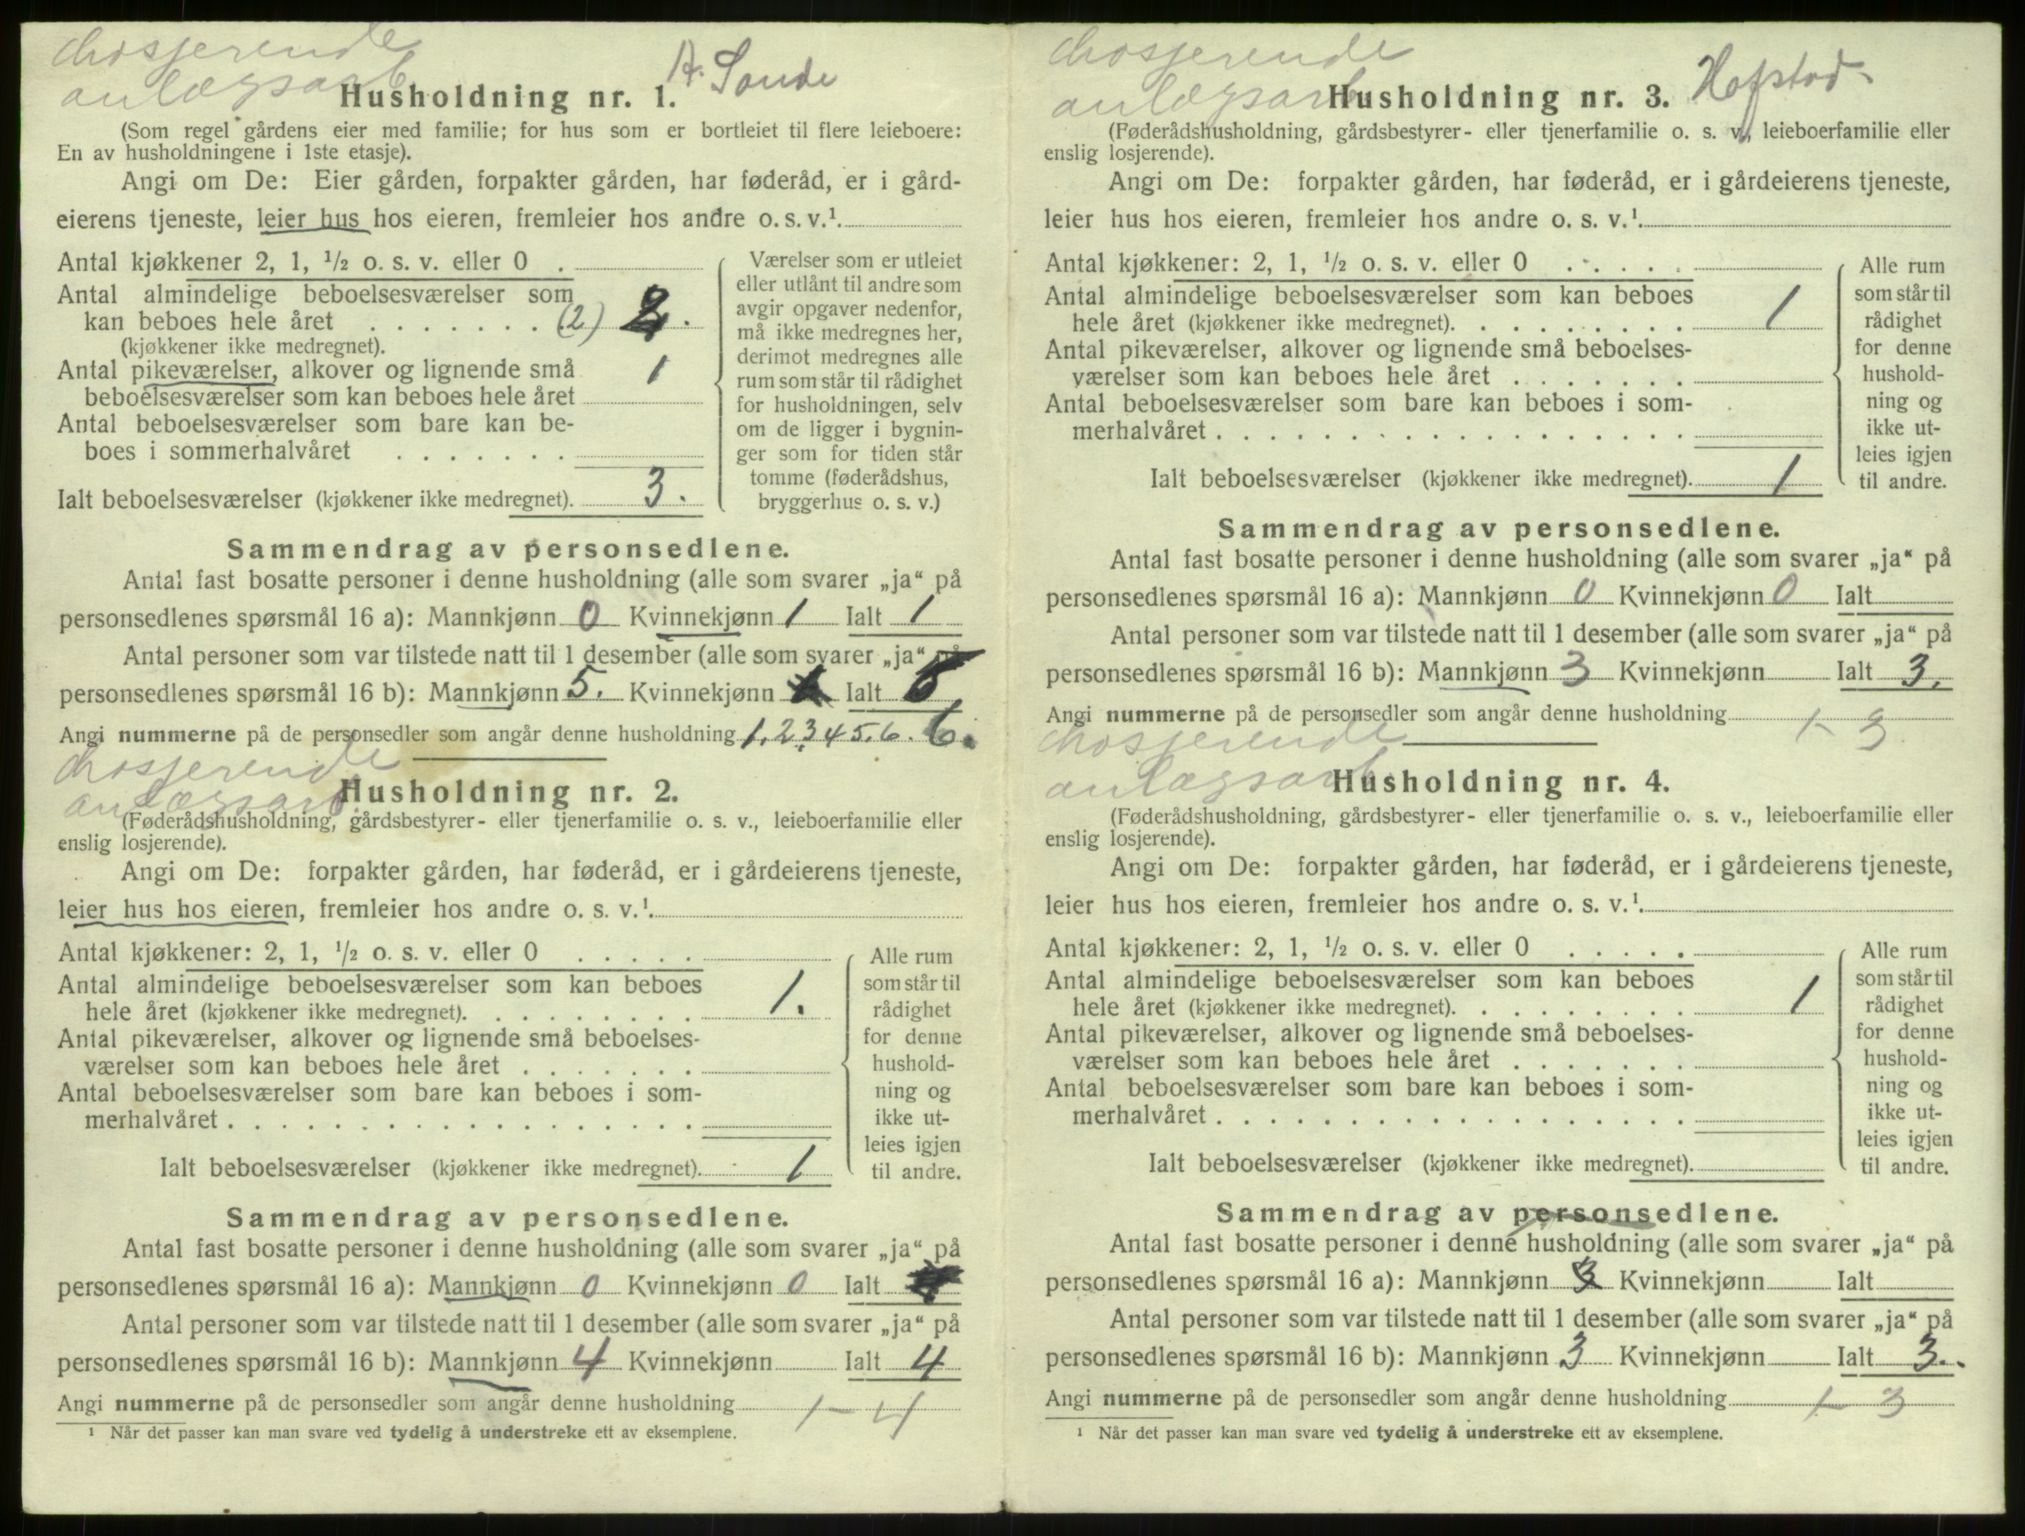 losjerende
anlægsarb.
A. Sande
Husholdning nr. 1.
(Som regel gårdens eier med familie; for hus som er bortleiet til flere leieboere:
En av husholdningene i 1ste etasje).
Angi om De: Eier gården, forpakter gården, har føderåd, er i gård-
eierens tjeneste, leier hus hos eieren, fremleier hos andre o. s. v.¹.
Antal kjøkkener 2, 1, ½ o. s. v. eller 0 .
Antal almindelige beboelsesværelser som
kan beboes hele året . . . . . . . (2) 2.
(kjøkkener ikke medregnet).
Antal pikeværelser, alkover og lignende små 1
beboelsesværelser som kan beboes hele året
Antal beboelsesværelser som bare kan be-
boes i sommerhalvåret . . . . . . .
Ialt beboelsesværelser (kjøkkener ikke medregnet). 3.
Værelser som er utleiet
eller utlånt til andre som
avgir opgaver nedenfor,
må ikke medregnes her,
derimot medregnes alle
rum som står til rådighet
for husholdningen, selv
om de ligger i bygnin-
ger som for tiden står
tomme (føderådshus,
bryggerhus o. s. v.)
Sammendrag av personsedlene.
Antal fast bosatte personer i denne husholdning (alle som svarer „ja“ på
personsedlenes spørsmål 16 a): Mannkjønn 0 Kvinnekjønn 1 Ialt 1
Antal personer som var tilstede natt til 1 desember (alle som svarer „ja“ på
personsedlenes spørsmål 16 b): Mannkjønn 5. Kvinnekjønn Ialt
Angi nummerne på de personsedler som angår denne husholdning 1.2345.6. 6.
losjerende
anlægsarb.
Husholdning nr. 2.
(Føderådshusholdning, gårdsbestyrer- eller tjenerfamilie o. s. v., leieboerfamilie eller
enslig losjerende).
Angi om De: forpakter gården, har føderåd, er i gårdeierens tjeneste,
leier hus hos eieren, fremleier hos andre o. s. v.¹.
Antal kjøkkener: 2, 1, ½ o. s. v. eller 0 . . . . .
Antal almindelige beboelsesværelser som kan beboes
hele året (kjøkkener ikke medregnet). . . . . . . . . 1.
Antal pikeværelser, alkover og lignende små beboelses-
værelser som kan beboes hele året . . . . . . .
Antal beboelsesværelser som bare kan beboes i som-
merhalvåret . . . . . . . . . . . . . . . . . .
Ialt beboelsesværelser (kjøkkener ikke medregnet). 1
Alle rum
som står til
rådighet
for denne
hushold-
ning og
ikke ut-
leies igjen
til andre.
Sammendrag av personsedlene.
Antal fast bosatte personer i denne husholdning (alle som svarer „ja“ på
personsedlenes spørsmål 16 a): Mannkjønn 0 Kvinnekjønn 0 Ialt
Antal personer som var tilstede natt til 1 desember (alle som svarer „ja“ på
personsedlenes spørsmål 16 b): Mannkjønn 4 Kvinnekjønn Ialt 4
Angi nummerne på de personsedler som angår denne husholdning 1-4
¹ Når det passer kan man svare ved tydelig å understreke ett av eksemplene.
losjerende
anlægsarb.
Hofstad
Husholdning nr. 3.
(Føderådshusholdning, gårdsbestyrer- eller tjenerfamilie o. s. v., leieboerfamilie eller
enslig losjerende).
Angi om De: forpakter gården, har føderåd, er i gårdeierens tjeneste,
leier hus hos eieren, fremleier hos andre o. s. v.¹.
Antal kjøkkener: 2, 1, ½ o. s. v. eller 0 . . . . .
Antal almindelige beboelsesværelser som kan beboes
hele året (kjøkkener ikke medregnet). . . . . . . . . 1
Antal pikeværelser, alkover og lignende små beboelses-
værelser som kan beboes hele året . . . . . . .
Antal beboelsesværelser som bare kan beboes i som-
merhalvåret . . . . . . . . . . . . . . . . . .
Ialt beboelsesværelser (kjøkkener ikke medregnet). 1
Alle rum
som står til
rådighet
for denne
hushold-
ning og
ikke ut-
leies igjen
til andre.
Sammendrag av personsedlene.
Antal fast bosatte personer i denne husholdning (alle som svarer „ja“ på
personsedlenes spørsmål 16 a): Mannkjønn 0 Kvinnekjønn 0 Ialt
Antal personer som var tilstede natt til 1 desember (alle som svarer „ja“ på
personsedlenes spørsmål 16 b): Mannkjønn 3 Kvinnekjønn Ialt 3.
Angi nummerne på de personsedler som angår denne husholdning 1-3
losjerende
anlægsarb.
Husholdning nr. 4.
(Føderådshusholdning, gårdsbestyrer- eller tjenerfamilie o. s. v., leieboerfamilie eller
enslig losjerende).
Angi om De: forpakter gården, har føderåd, er i gårdeierens tjeneste,
leier hus hos eieren, fremleier hos andre o. s. v.¹.
Antal kjøkkener: 2, 1, ½ o. s. v. eller 0 . . . . .
Antal almindelige beboelsesværelser som kan beboes
hele året (kjøkkener ikke medregnet). . . . . . . . . 1
Antal pikeværelser, alkover og lignende små beboelses-
værelser som kan beboes hele året . . . . . . .
Antal beboelsesværelser som bare kan beboes i som-
merhalvåret . . . . . . . . . . . . . . . . . .
Ialt beboelsesværelser (kjøkkener ikke medregnet).
Alle rum
som står til
rådighet
for denne
hushold-
ning og
ikke ut-
leies igjen
til andre.
Sammendrag av personsedlene.
Antal fast bosatte personer i denne husholdning (alle som svarer „ja“ på
personsedlenes spørsmål 16 a): Mannkjønn 3 Kvinnekjønn Ialt
Antal personer som var tilstede natt til 1 desember (alle som svarer „ja“ på
personsedlenes spørsmål 16 b): Mannkjønn 3 Kvinnekjønn Ialt 3.
Angi nummerne på de personsedler som angår denne husholdning 1-3
¹ Når det passer kan man svare ved tydelig å understreke ett av eksemplene.